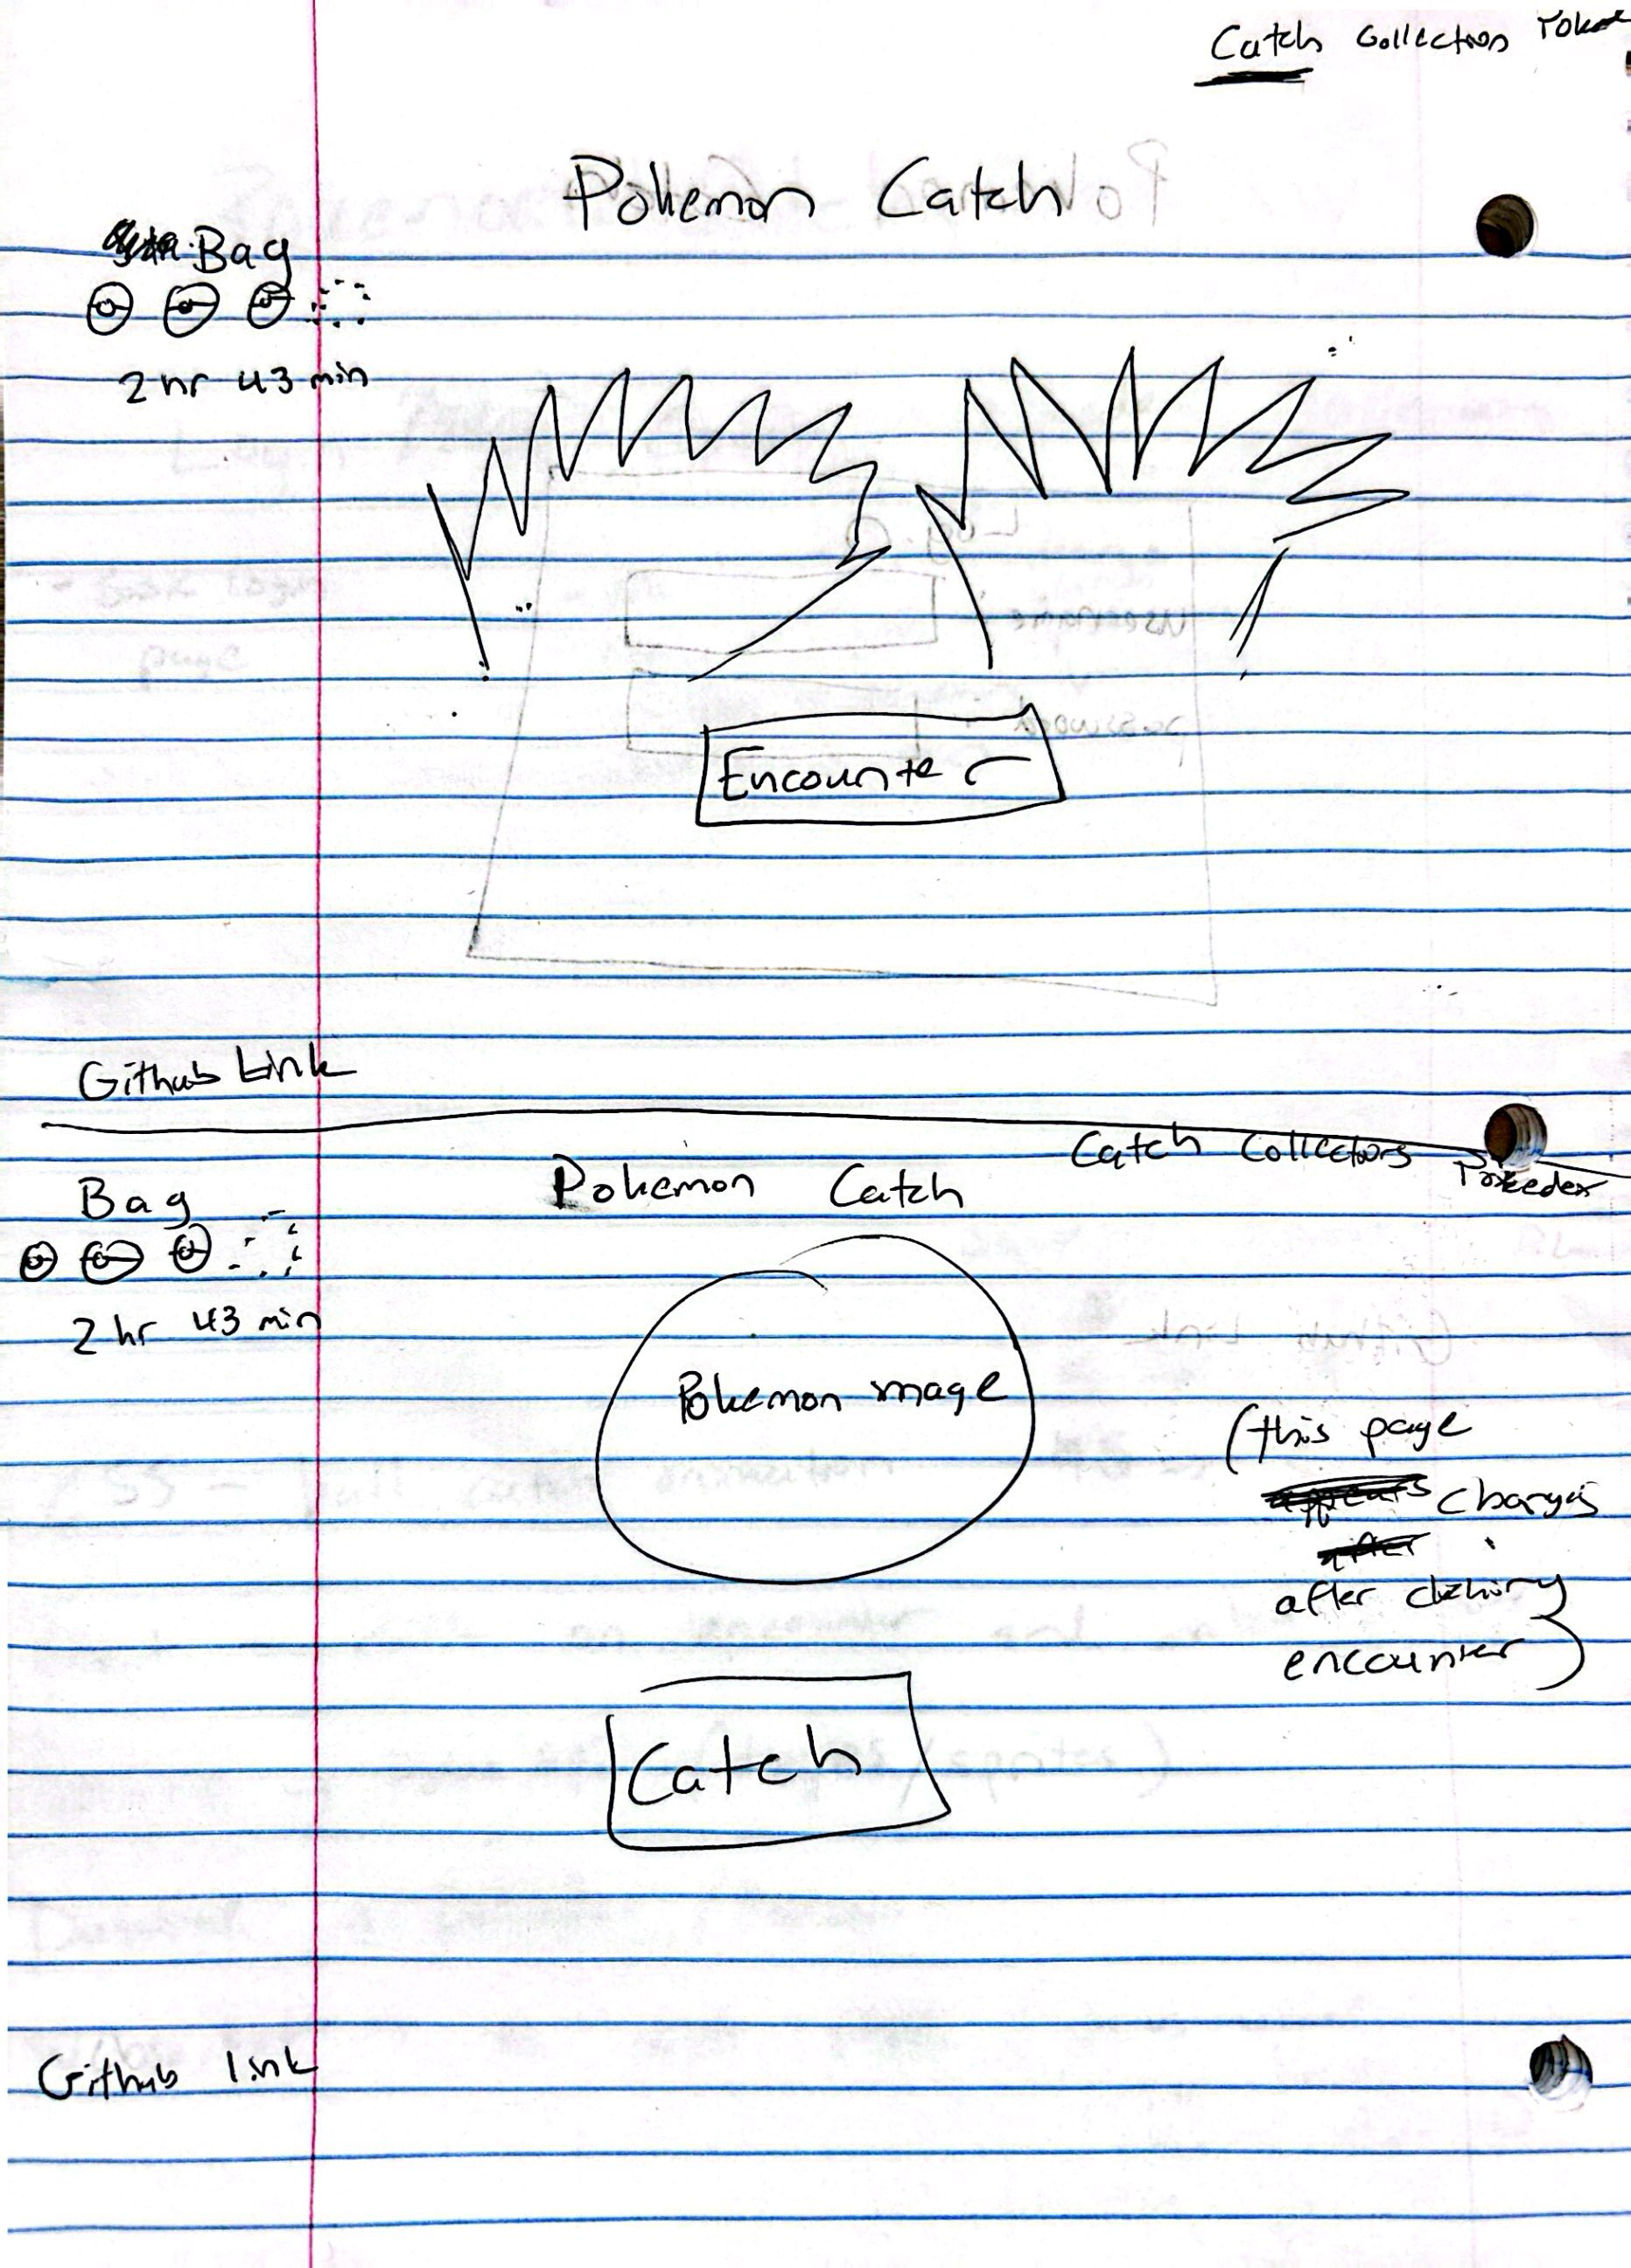 Catch Collection Poke
Pokemon Catch
Bag
2 hr 43 min
Encounter
Github Link
Catch Collections Pokedex
Pokemon Catch
Bag
2 hr 43 min
Pokemon image
(this page
changes
after
after clicking
encounter)
Catch
Github link